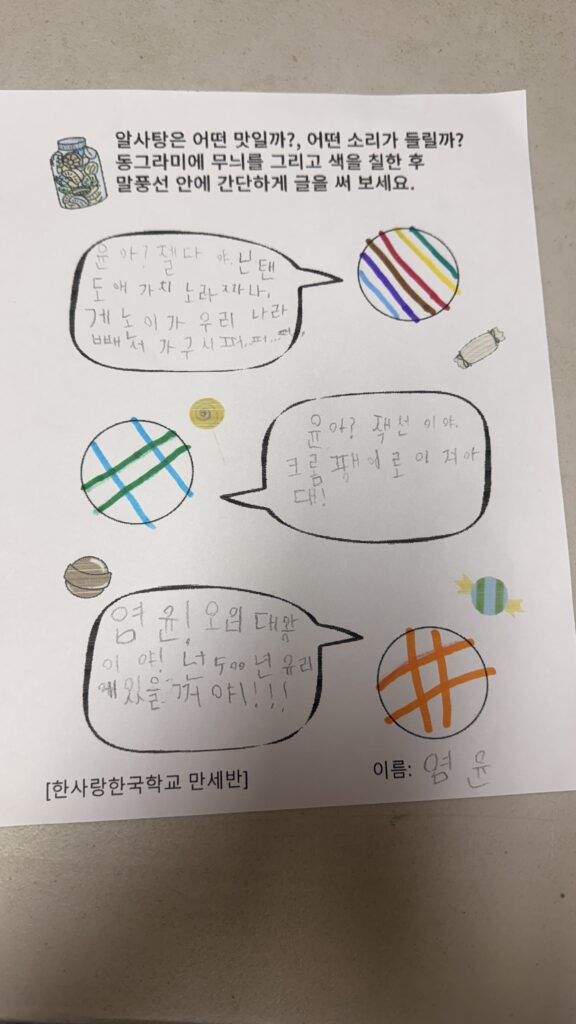 알사탕은 어떤 맛일까?, 어떤 소리가 들릴까?
동그라미에 무늬를 그리고 색을 칠한 후
말풍선 안에 간단하게 글을 써 보세요.
윤 아? 젤다 야. 닌텐
도에 가치 노라 짜나,
게 노 이가 우리 나라
빼서 가구 시퍼.. 퍼... 퍼..
윤 아? 잭슨 이야.
크롬 이 져아
대!
염 윤! 오입 대왕
이 야! 넌 500 년 유리
에 있을 꺼 야!!!!
[한사랑한국학교 만세반]
이름: 염 윤